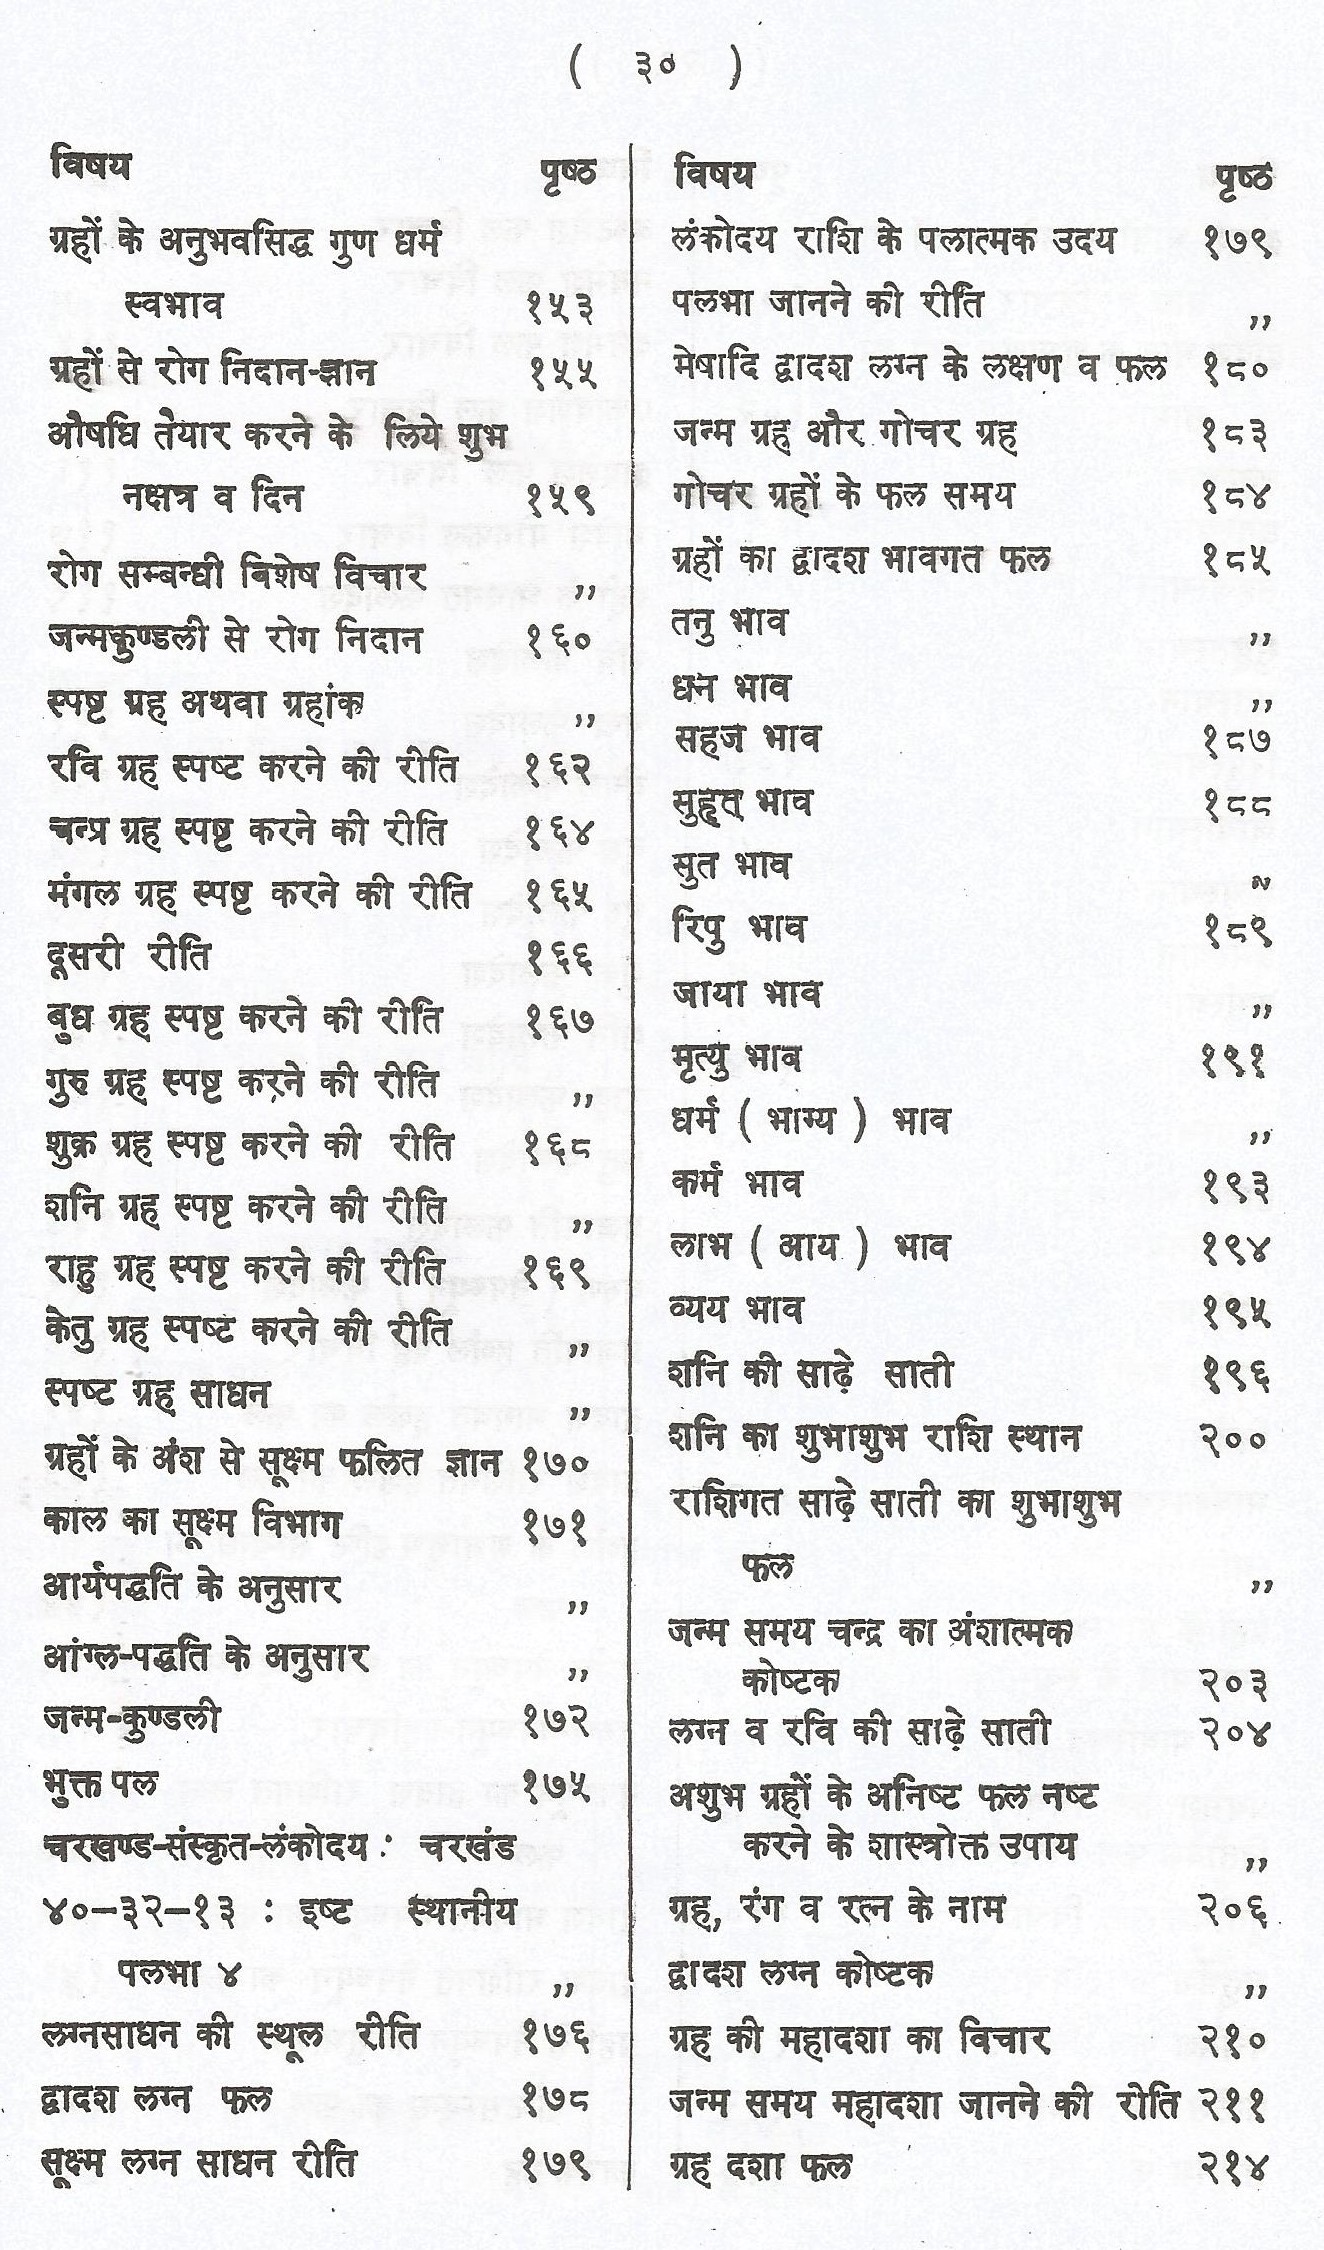 ( ३० )
विषय पृष्ठ
ग्रहों के अनुभवसिद्ध गुण धर्म
स्वभाव १५३
ग्रहों से रोग निदान-ज्ञान १५५
औषधि तैयार करने के लिये शुभ
नक्षत्र व दिन १५९
रोग सम्बन्धी बिशेष विचार ,,
जन्मकुण्डली से रोग निदान १६०
स्पष्ट ग्रह अथवा ग्रहांक ,,
रवि ग्रह स्पष्ट करने की रीति १६२
चन्प्र ग्रह स्पष्ट करने की रीति १६४
मंगल ग्रह स्पष्ट करने की रीति १६५
दूसरी रीति १६६
बुध ग्रह स्पष्ट करने की रीति १६७
गुरु ग्रह स्पष्ट करने की रीति ,,
शुक्र ग्रह स्पष्ट करने की रीति १६८
शनि ग्रह स्पष्ट करने की रीति ,,
राहु ग्रह स्पष्ट करने की रीति १६९
केतु ग्रह स्पष्ट करने की रीति ,,
स्पष्ट ग्रह साधन ,,
ग्रहों के अंश से सूक्ष्म फलित ज्ञान १७०
काल का सूक्ष्म विभाग १७१
आर्यपद्धति के अनुसार ,,
आंग्ल-पद्धति के अनुसार ,,
जन्म-कुण्डली १७२
भुक्त पल १७५
चरखण्ड-संस्कृत-लंकोदय : चरखंड
४०-३२-१३ : इष्ट स्थानीय
पलभा ४ ,,
लग्नसाधन की स्थूल रीति १७६
द्वादश लग्न फल १७८
सूक्ष्म लग्न साधन रीति १७९
विषय पृष्ठ
लंकोदय राशि के पलात्मक उदय १७९
पलभा जानने की रीति ,,
मेषादि द्वादश लग्न के लक्षण व फल १८०
जन्म ग्रह और गोचर ग्रह १८३
गोचर ग्रहों के फल समय १८४
ग्रहों का द्वादश भावगत फल १८५
तनु भाव ,,
धन भाव ,,
सहज भाव १८७
सुहृत् भाव १८८
सुत भाव ,,
रिपु भाव १८९
जाया भाव ,,
मृत्यु भाव १९१
धर्म ( भाग्य ) भाव ,,
कर्म भाव १९३
लाभ ( आय ) भाव १९४
व्यय भाव १९५
शनि की साढ़े साती १९६
शनि का शुभाशुभ राशि स्थान २००
राशिगत साढ़े साती का शुभाशुभ
फल ,,
जन्म समय चन्द्र का अंशात्मक
कोष्टक २०३
लग्न व रवि की साढ़े साती २०४
अशुभ ग्रहों के अनिष्ट फल नष्ट
करने के शास्त्रोक्त उपाय ,,
ग्रह, रंग व रत्न के नाम २०६
द्वादश लग्न कोष्टक ,,
ग्रह की महादशा का विचार २१०
जन्म समय महादशा जानने की रीति २११
ग्रह दशा फल २१४